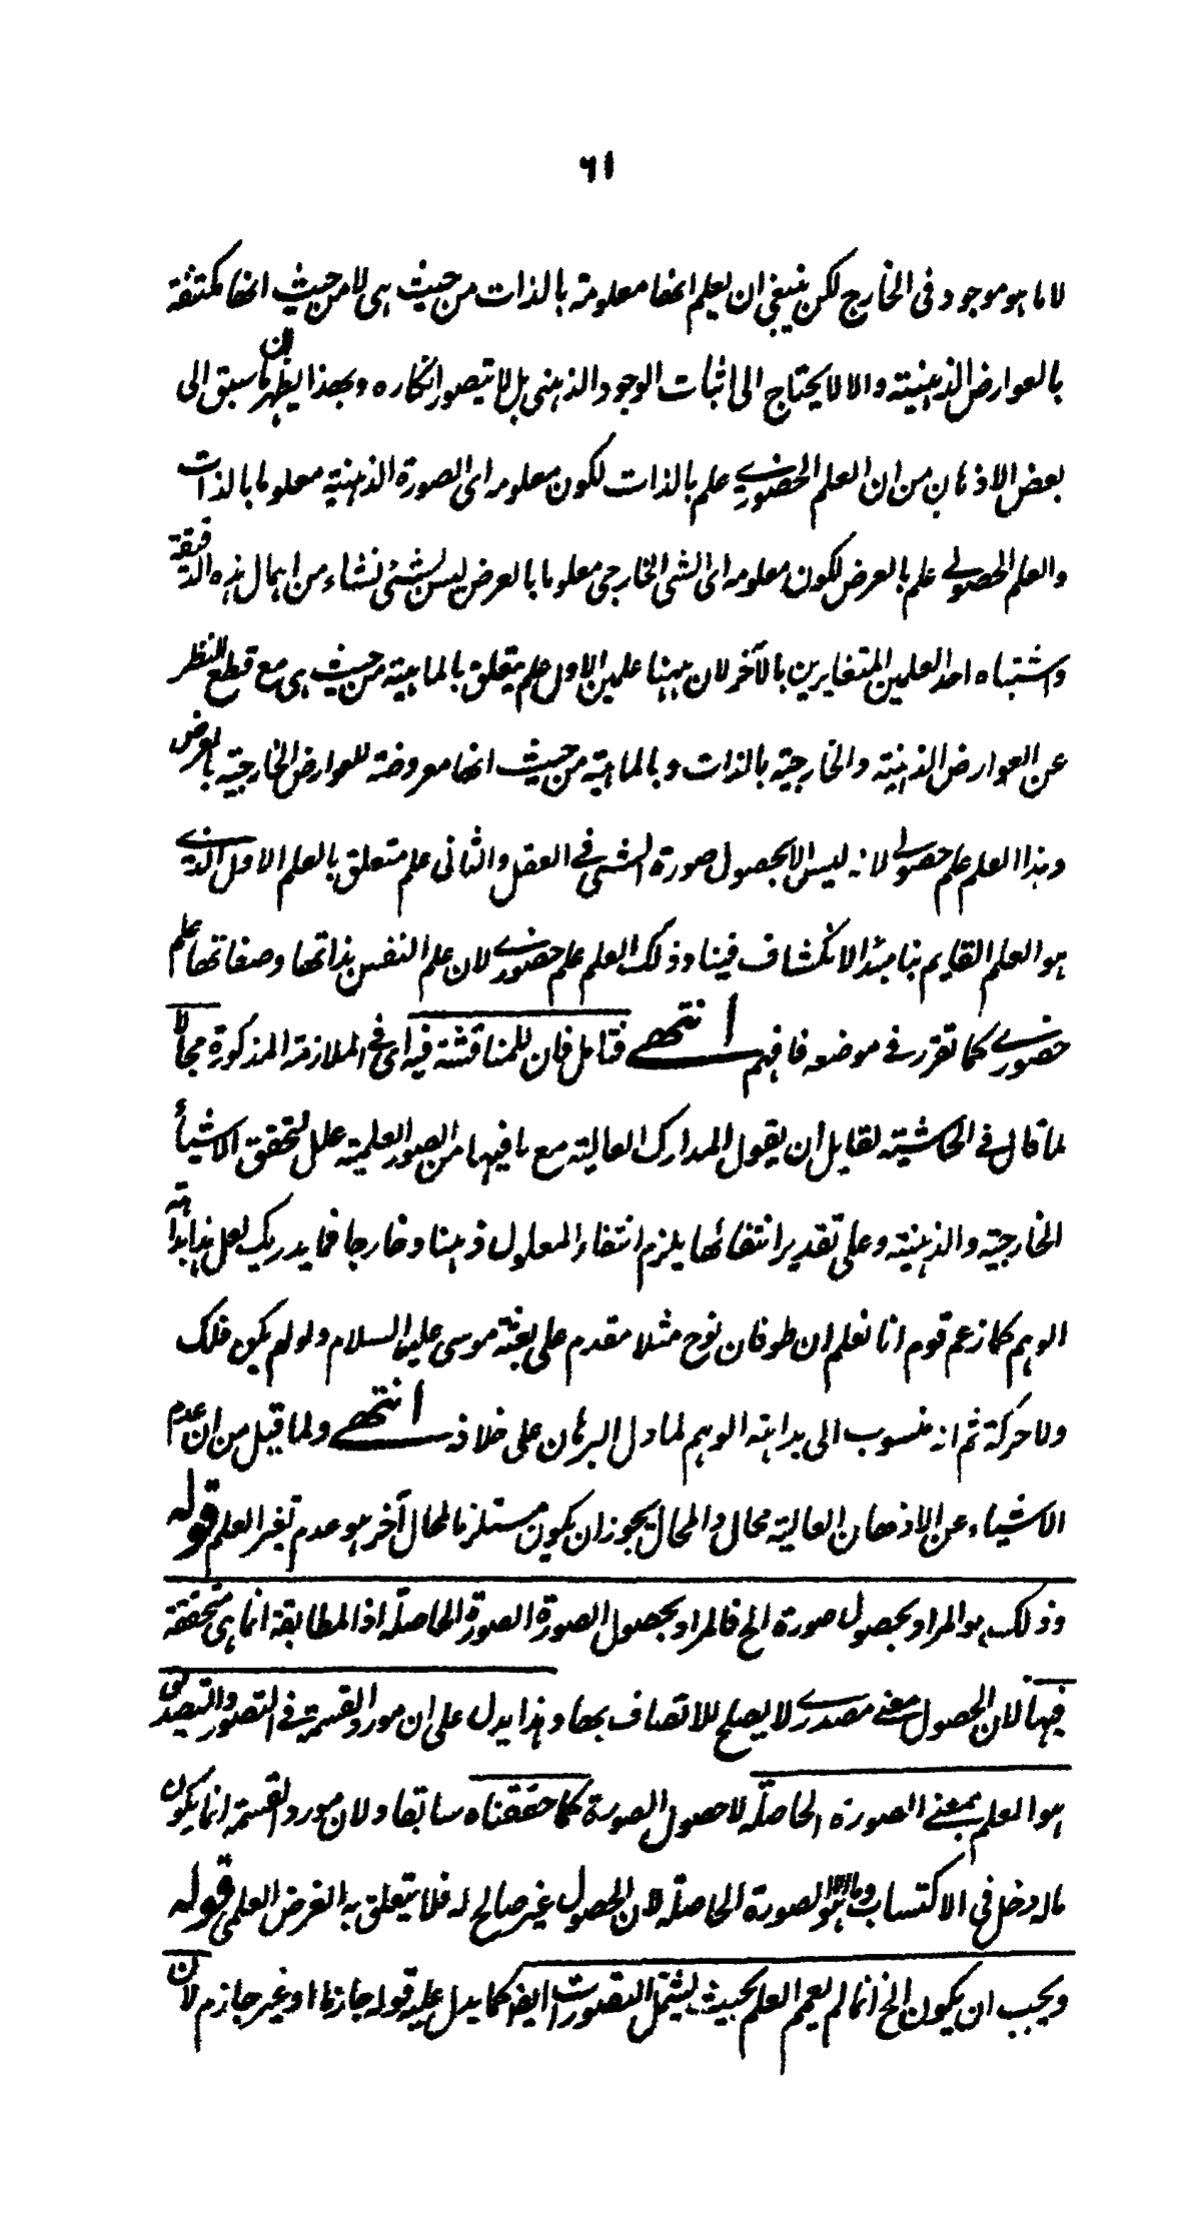 ٦١
لا ما هو موجود فى الخارج لكن ينبغى ان يعلم انها معلومة بالذات من حيث هى لا من حيث انها مكتنفة
بالعوارض الذهنية والا لا يحتاج الى اثبات الوجود الذهنى بل لا يتصور انكاره وبهذا يظهر ان ما سبق الى
بعض الاذهان من ان العلم الحضورى علم بالذات لكون معلومه اى الصورة الذهنية معلوما بالذات
والعلم الحصولى علم بالعرض لكون معلومه اى الشئ الخارجى معلوما بالعرض ليس بشئ نشاء من اهمال هذه الدقيقة
واشتباه احد العلمين المتغايرين بالآخر لان ههنا علمين الاول علم يتعلق بالماهية من حيث هى مع قطع النظر
عن العوارض الذهنية والخارجية بالذات وبالماهية من حيث انها معروضة للعوارض الخارجية بالعرض
وهذا العلم علم حصولى لانه ليس الا بحصول صورة الشئ فى العقل والثانى علم متعلق بالعلم الاول الذى
هو العلم القايم بنا مبدٔ الانكشاف فينا وذلك العلم علم حضورى لان علم النفس بذاتها وصفاتها علم
حضورى كما تقرر فى موضعه فافهم انتهى فتامل فان للمناقشة فيه اى فى الملازمة المذكورة مجالا
لما قال فى الحاشية لقايل أن يقول المدارك العالية مع ما فيها من الصور العلمية علل لتحقق الاشيأ
الخارجية والذهنية وعلى تقدير انتفائها يلزم انتفاء المعلول ذهنا وخارجا فما يدريك لعل هذا بداهة
الوهم كما زعم قوم انا نعلم ان طوفان نوح مثلا مقدم على بعثة موسى عليهما السلام ولو لم يكن فلك
ولا حركة ثم انه منسوب الى بداهته الوهم لما دل البرهان على خلافه انتهى ولما قيل من ان عدم
الاشياء عن الاذهان العالية محال والمحال يجوز ان يكون مستلزما لمحال آخر هو عدم تغير العلم قوله
وذلك هو المراد بحصول صورة الخ فالمراد بحصول الصورة الصورة الحاصلة اذ المطابقة انما هى متحققة
فيها لان الحصول معنى مصدرى لا يصلح للاتصاف بها وهذا يدل على ان مورد القسمة فى التصور والتصديق
هو العلم بمعنى الصورة الحاصلة لا حصول الصورة كما حققناه سابقا ولان مورد القسمة انما يكون
ماله دخل فى الاكتساب وما هو الا الصورة الحاصلة لان الحصول غير صالح له فلا يتعلق به الغرض العلمى قوله
ويجب ان يكون الخ انما لم يعمم العلم بحيث يشتمل التصورات ايضا كما يدل عليه قوله جازما او غير جازم لان